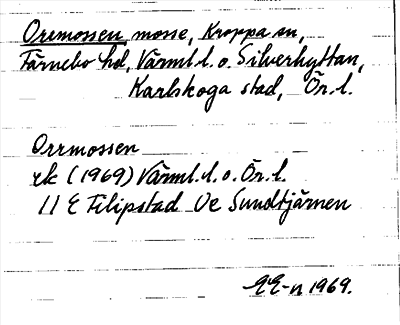 Orrmossen, mosse, Kroppa sn,
Färnebo hd, Värml. l. o. Silverhyttan,
Karlskoga stad, Ör. l.
Orrmossen
rk (1969) Värml. l. o. Ör. l.
11 E Filipstad 0e Sundtjärnen
EE-n 1969.